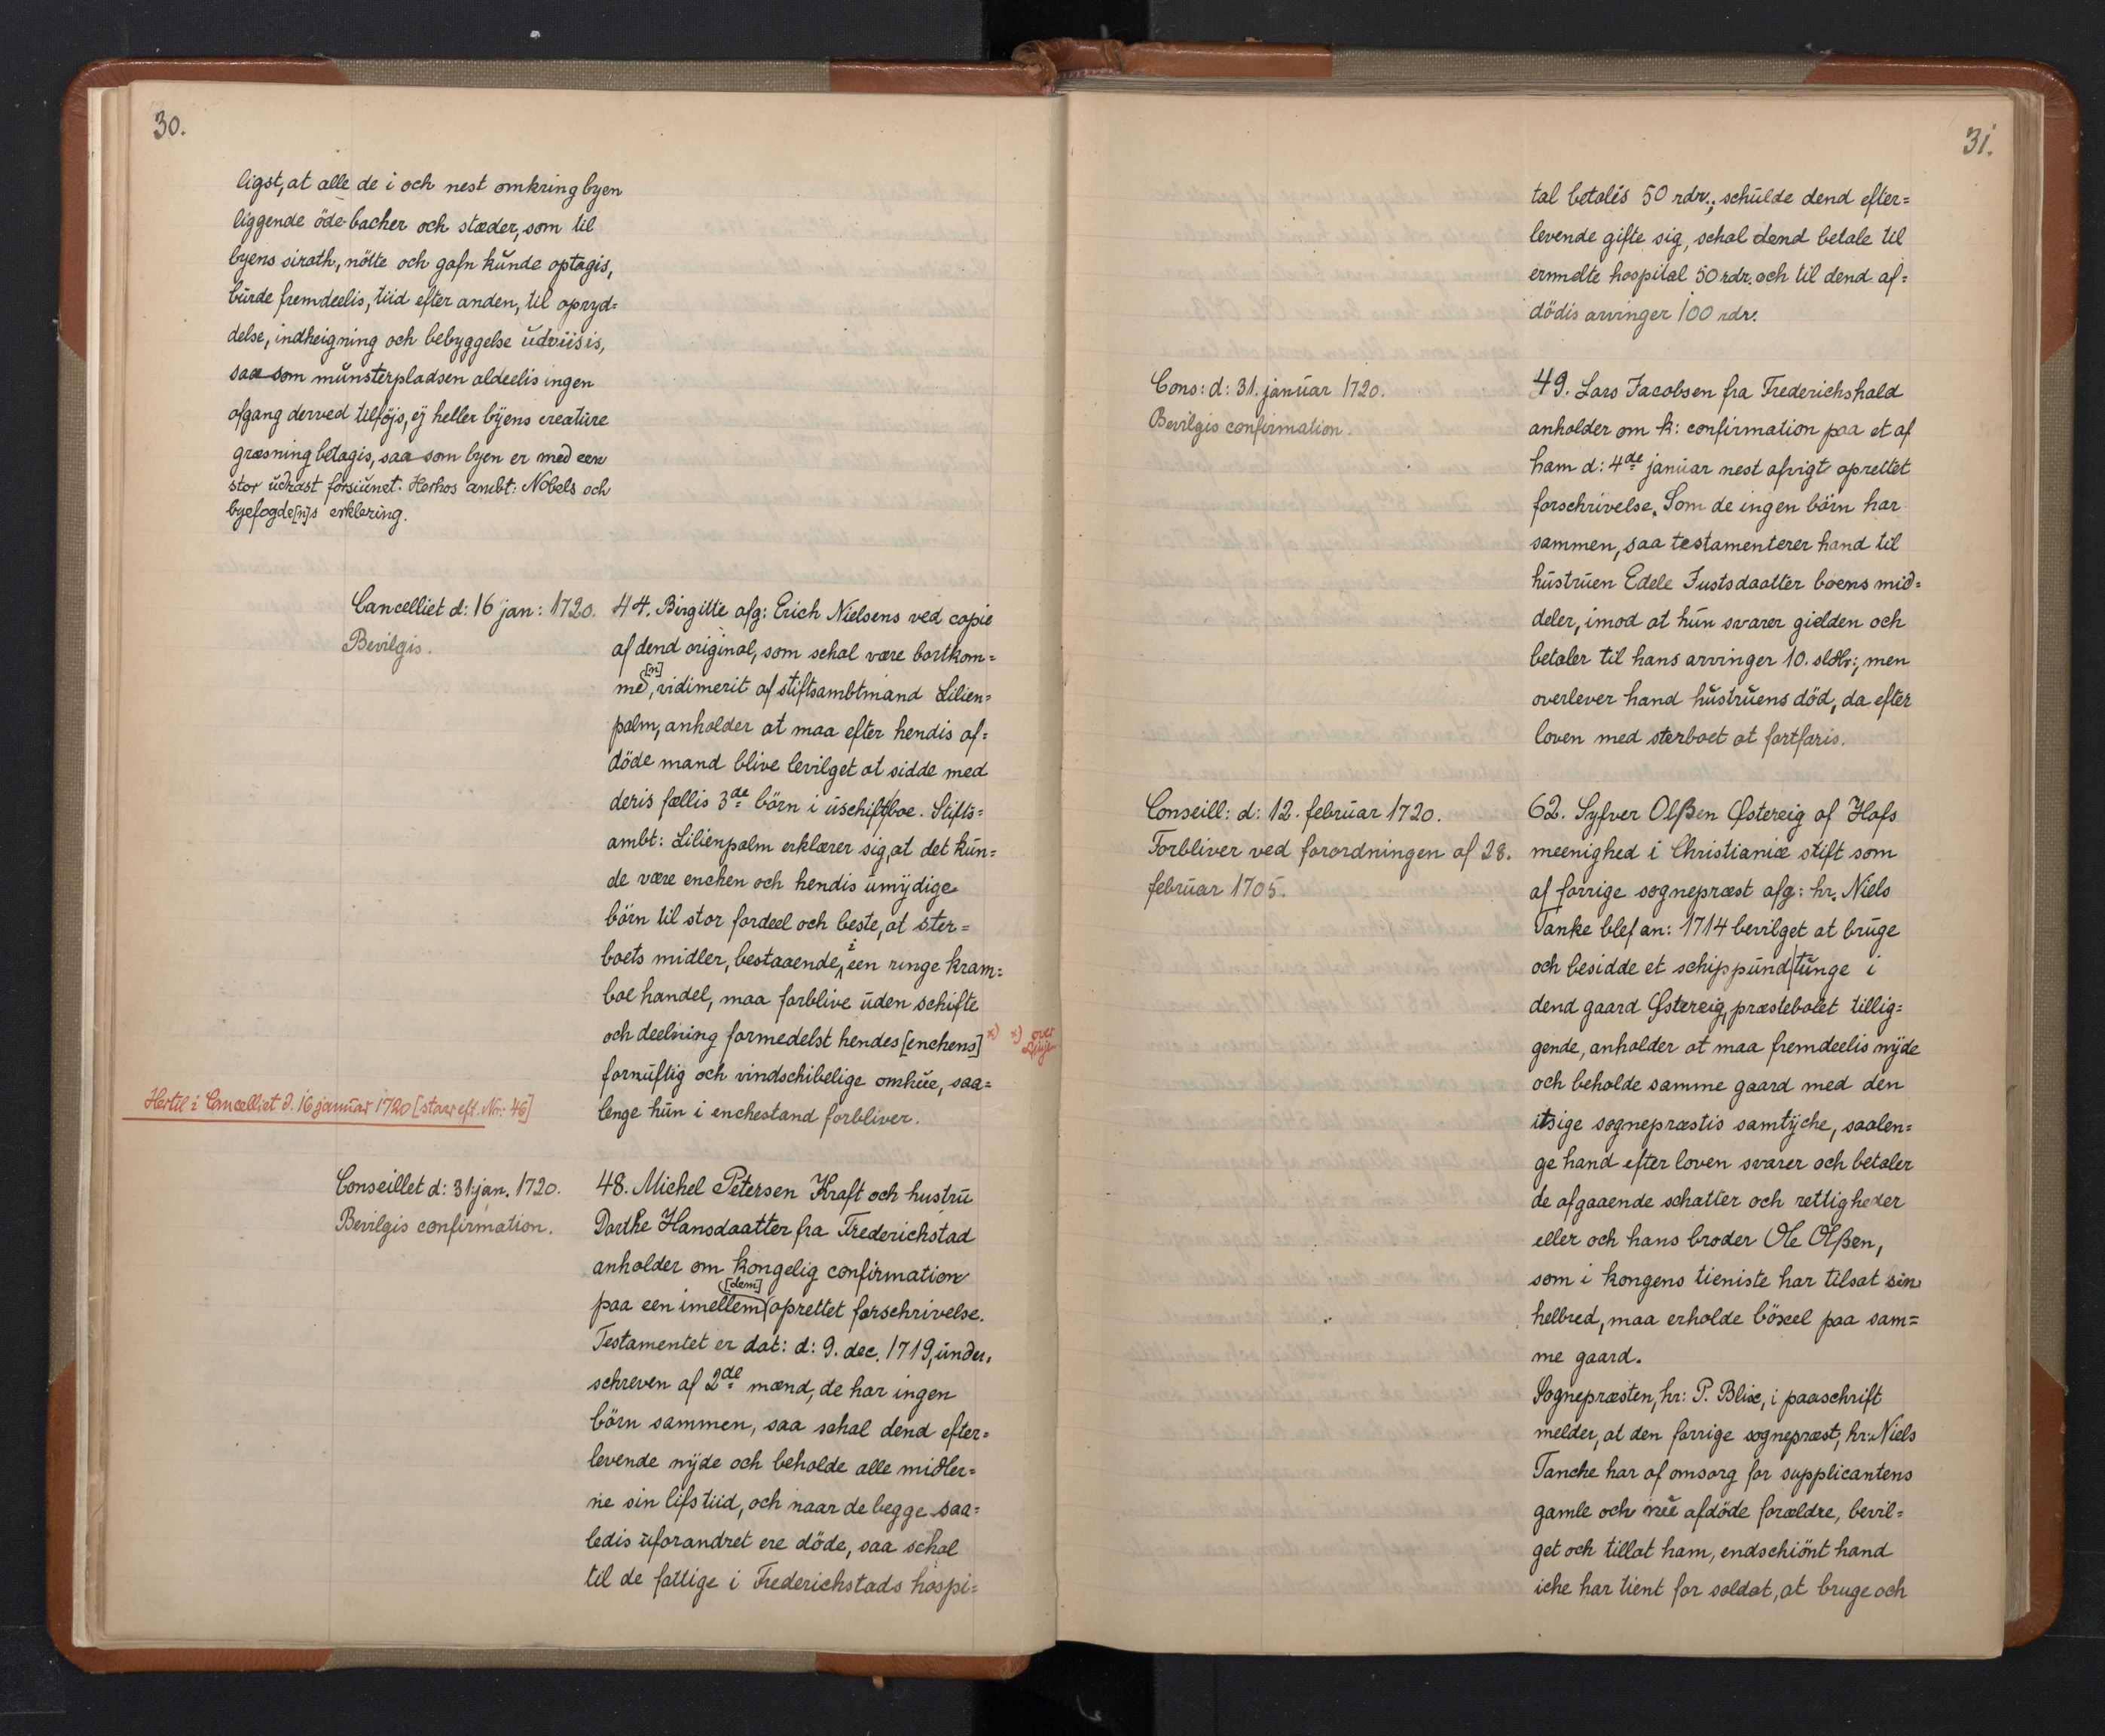 30.
ligst, at alle de i och nest omkring byen
liggende öde bacher och stæder, som til
byens sirath, nötte och gafn kŭnde optagis,
bŭrde fremdeelis, tiid efter anden, til opryd=
delse, indheigning och bebyggelse ŭdviisis,
saa som mŭnsterpladsen aldeelis ingen
afgang derved tilföjs, ej heller byens creatŭre
græsning betagis, saa som byen er med een
stor ŭdrast forsiŭnet. Herhos ambt: Nobels och
byefogde[n]s erklering.
Cancelliet d: 16 jan: 1720.
Bevilgis.
44. Birgitte afg: Erich Nielsens ved copie
af dend original, som schal være bortkom=
me[n], vidimerit af stiftsambtmand Lilien=
palm, anholder at maa efter hendis af=
döde mand blive bevilget at sidde med
deris fællis 3de börn i ŭschiftboe. Stifts=
ambt: Lilienpalm erklærer sig, at det kŭn=
de være enchen och hendis ŭmÿdige
börn til stor fordeel och beste, at ster=
boets midler, bestaaende i een ringe kram=
boe handel, maa forblive ŭden schifte
och deelning formedelst hendes [enchens] x) x) over
linje
fornŭftig och vindschibelige omhŭe, saa=
lenge hŭn i enchestand forbliver.
Hertil i Cancelliet d. 16 janŭar 1720 [staar eft. Nr: 46]
Conseillet d: 31. jan. 1720.
Bevilgis confirmation.
48. Michel Petersen Kraft och hustrŭ
Dorthe Hansdaatter fra Frederichstad
anholder om kongelig confirmation
paa een imellem [dem] oprettet forschrivelse.
Testamentet er dat: d: 9. dec. 1719, ŭnder=
schreven af 2de mænd, de har ingen
börn sammen, saa schal dend efter=
levende nÿde och beholde alle midler=
ne sin lifs tiid, och naar de begge saa=
ledis ŭforandret ere döde, saa schal
til de fattige i Frederichstads hospi=
31.
tal betalés 50 rdr.; schŭlde dend efter=
levende gifte sig, schal dend betale til
ermelte hospital 50 rdr. och til dend af=
dödis arvinger 100 rdr.
Cons: d: 31. janŭar 1720.
Bevilgis confirmation.
49. Lars Jacobsen fra Frederichshald
anholder om k: confirmation paa et af
ham d: 4de janŭar nest afvigt oprettet
forschrivelse. Som de ingen börn har
sammen, saa testamenterer hand til
hŭstrŭen Edele Justsdaatter boens mid=
deler, imod at hŭn svarer gielden och
betaler til hans arvinger 10. sldlr.; men
overlever hand hŭstrŭens död, da efter
loven med sterboet at fortfaris.
Conseill: d: 12. febrŭar 1720.
Forbliver ved forordningen af 28.
febrŭar 1705.
62. Syfver Olßen Østereig af Hofs
meenighed i Christianiæ stift som
af forrige sognepræst afg: hr. Niels
Tanke blef an: 1714 bevilget at brŭge
och besidde et schippŭnd tŭnge i
dend gaard Østereig, præstebolet tillig=
gende, anholder at maa fremdeelis nÿde
och beholde samme gaard med den
itsige sognepræstis samtÿche, saalen=
ge hand efter loven svarer och betaler
de afgaaende schatter och rettigheder
eller och hans broder Ole Olßen,
som i kongens tieniste har tilsat sin
helbred, maa erholde böxel paa sam=
me gaard.
Sognepræsten, hr: P. Blix, i paaschrift
melder, at den forrige sognepræst, hr: Niels
Tanche har af omsorg for supplicantens
gamle och nŭ afdöde forældre, bevil=
get och tillat ham, endschiönt hand
iche har tient for soldat, at bruge och